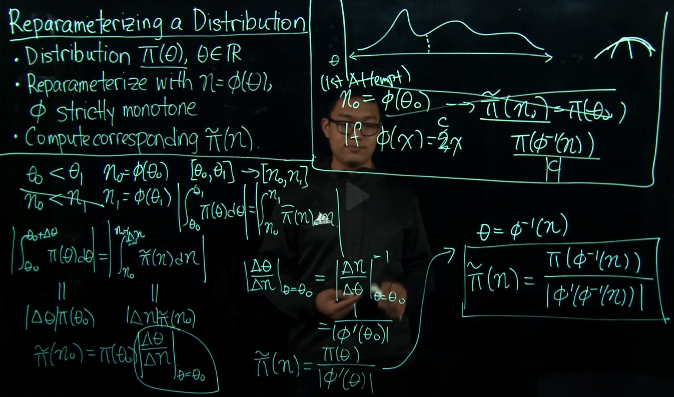 Reparameterizing a Distribution
• Distribution π(θ), θ∈ℝ
• Reparameterize with η=φ(θ),
φ strictly monotone
• Compute corresponding π̃(η).
θ
(1st Attempt)
η₀ = φ(θ₀) → π̃(η₀) = π(θ₀)
If φ(x)=2x
c
π(φ⁻¹(η))
|c|
θ₀ < θ₁ η₀=φ(θ₀) [θ₀,θ₁] → [η₀,η₁]
η₀ < η₁ η₁=φ(θ₁) |∫_θ₀^θ₁ π(θ)dθ| = |∫_η₀^η₁ π̃(η)dη|
|∫_θ₀^θ₀+Δθ π(θ)dθ| = |∫_η₀^η₀+Δη π̃(η)dη|
|| ||
|Δθ|π(θ₀) |Δη|π̃(η₀)
π̃(η₀) = π(θ₀)|Δθ/Δη|_θ=θ₀
|Δθ/Δη|_θ=θ₀ = |Δη/Δθ|⁻¹_θ=θ₀
= 1/|φ'(θ₀)|
π̃(η) = π(θ)/|φ'(θ)|
θ = φ⁻¹(η)
π̃(η) = π(φ⁻¹(η))/|φ'(φ⁻¹(η))|